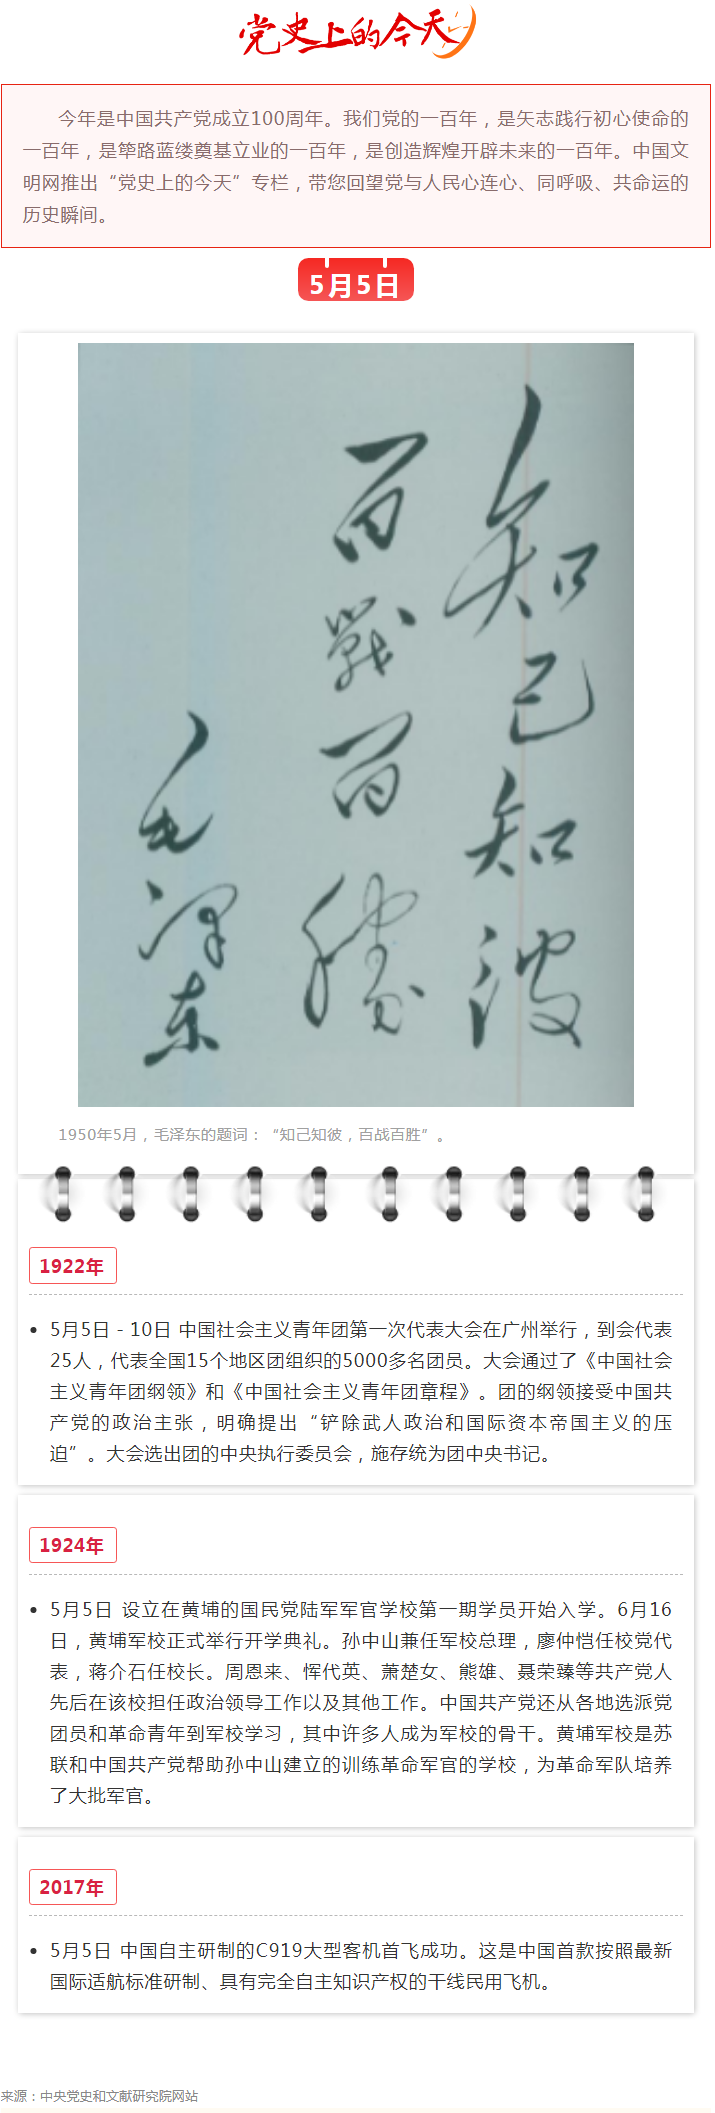 党史上的今天
今年是中国共产党成立100周年。我们党的一百年，是矢志践行初心使命的
一百年，是筚路蓝缕奠基立业的一百年，是创造辉煌开辟未来的一百年。中国文
明网推出“党史上的今天”专栏，带您回望党与人民心连心、同呼吸、共命运的
历史瞬间。
5月5日
知己知彼
百戰百勝
毛泽东
1950年5月，毛泽东的题词：“知己知彼，百战百胜”。
1922年
5月5日－10日 中国社会主义青年团第一次代表大会在广州举行，到会代表
25人，代表全国15个地区团组织的5000多名团员。大会通过了《中国社会
主义青年团纲领》和《中国社会主义青年团章程》。团的纲领接受中国共
产党的政治主张，明确提出“铲除武人政治和国际资本帝国主义的压
迫”。大会选出团的中央执行委员会，施存统为团中央书记。
1924年
5月5日 设立在黄埔的国民党陆军军官学校第一期学员开始入学。6月16
日，黄埔军校正式举行开学典礼。孙中山兼任军校总理，廖仲恺任校党代
表，蒋介石任校长。周恩来、恽代英、萧楚女、熊雄、聂荣臻等共产党人
先后在该校担任政治领导工作以及其他工作。中国共产党还从各地选派党
团员和革命青年到军校学习，其中许多人成为军校的骨干。黄埔军校是苏
联和中国共产党帮助孙中山建立的训练革命军官的学校，为革命军队培养
了大批军官。
2017年
5月5日 中国自主研制的C919大型客机首飞成功。这是中国首款按照最新
国际适航标准研制、具有完全自主知识产权的干线民用飞机。
来源：中央党史和文献研究院网站